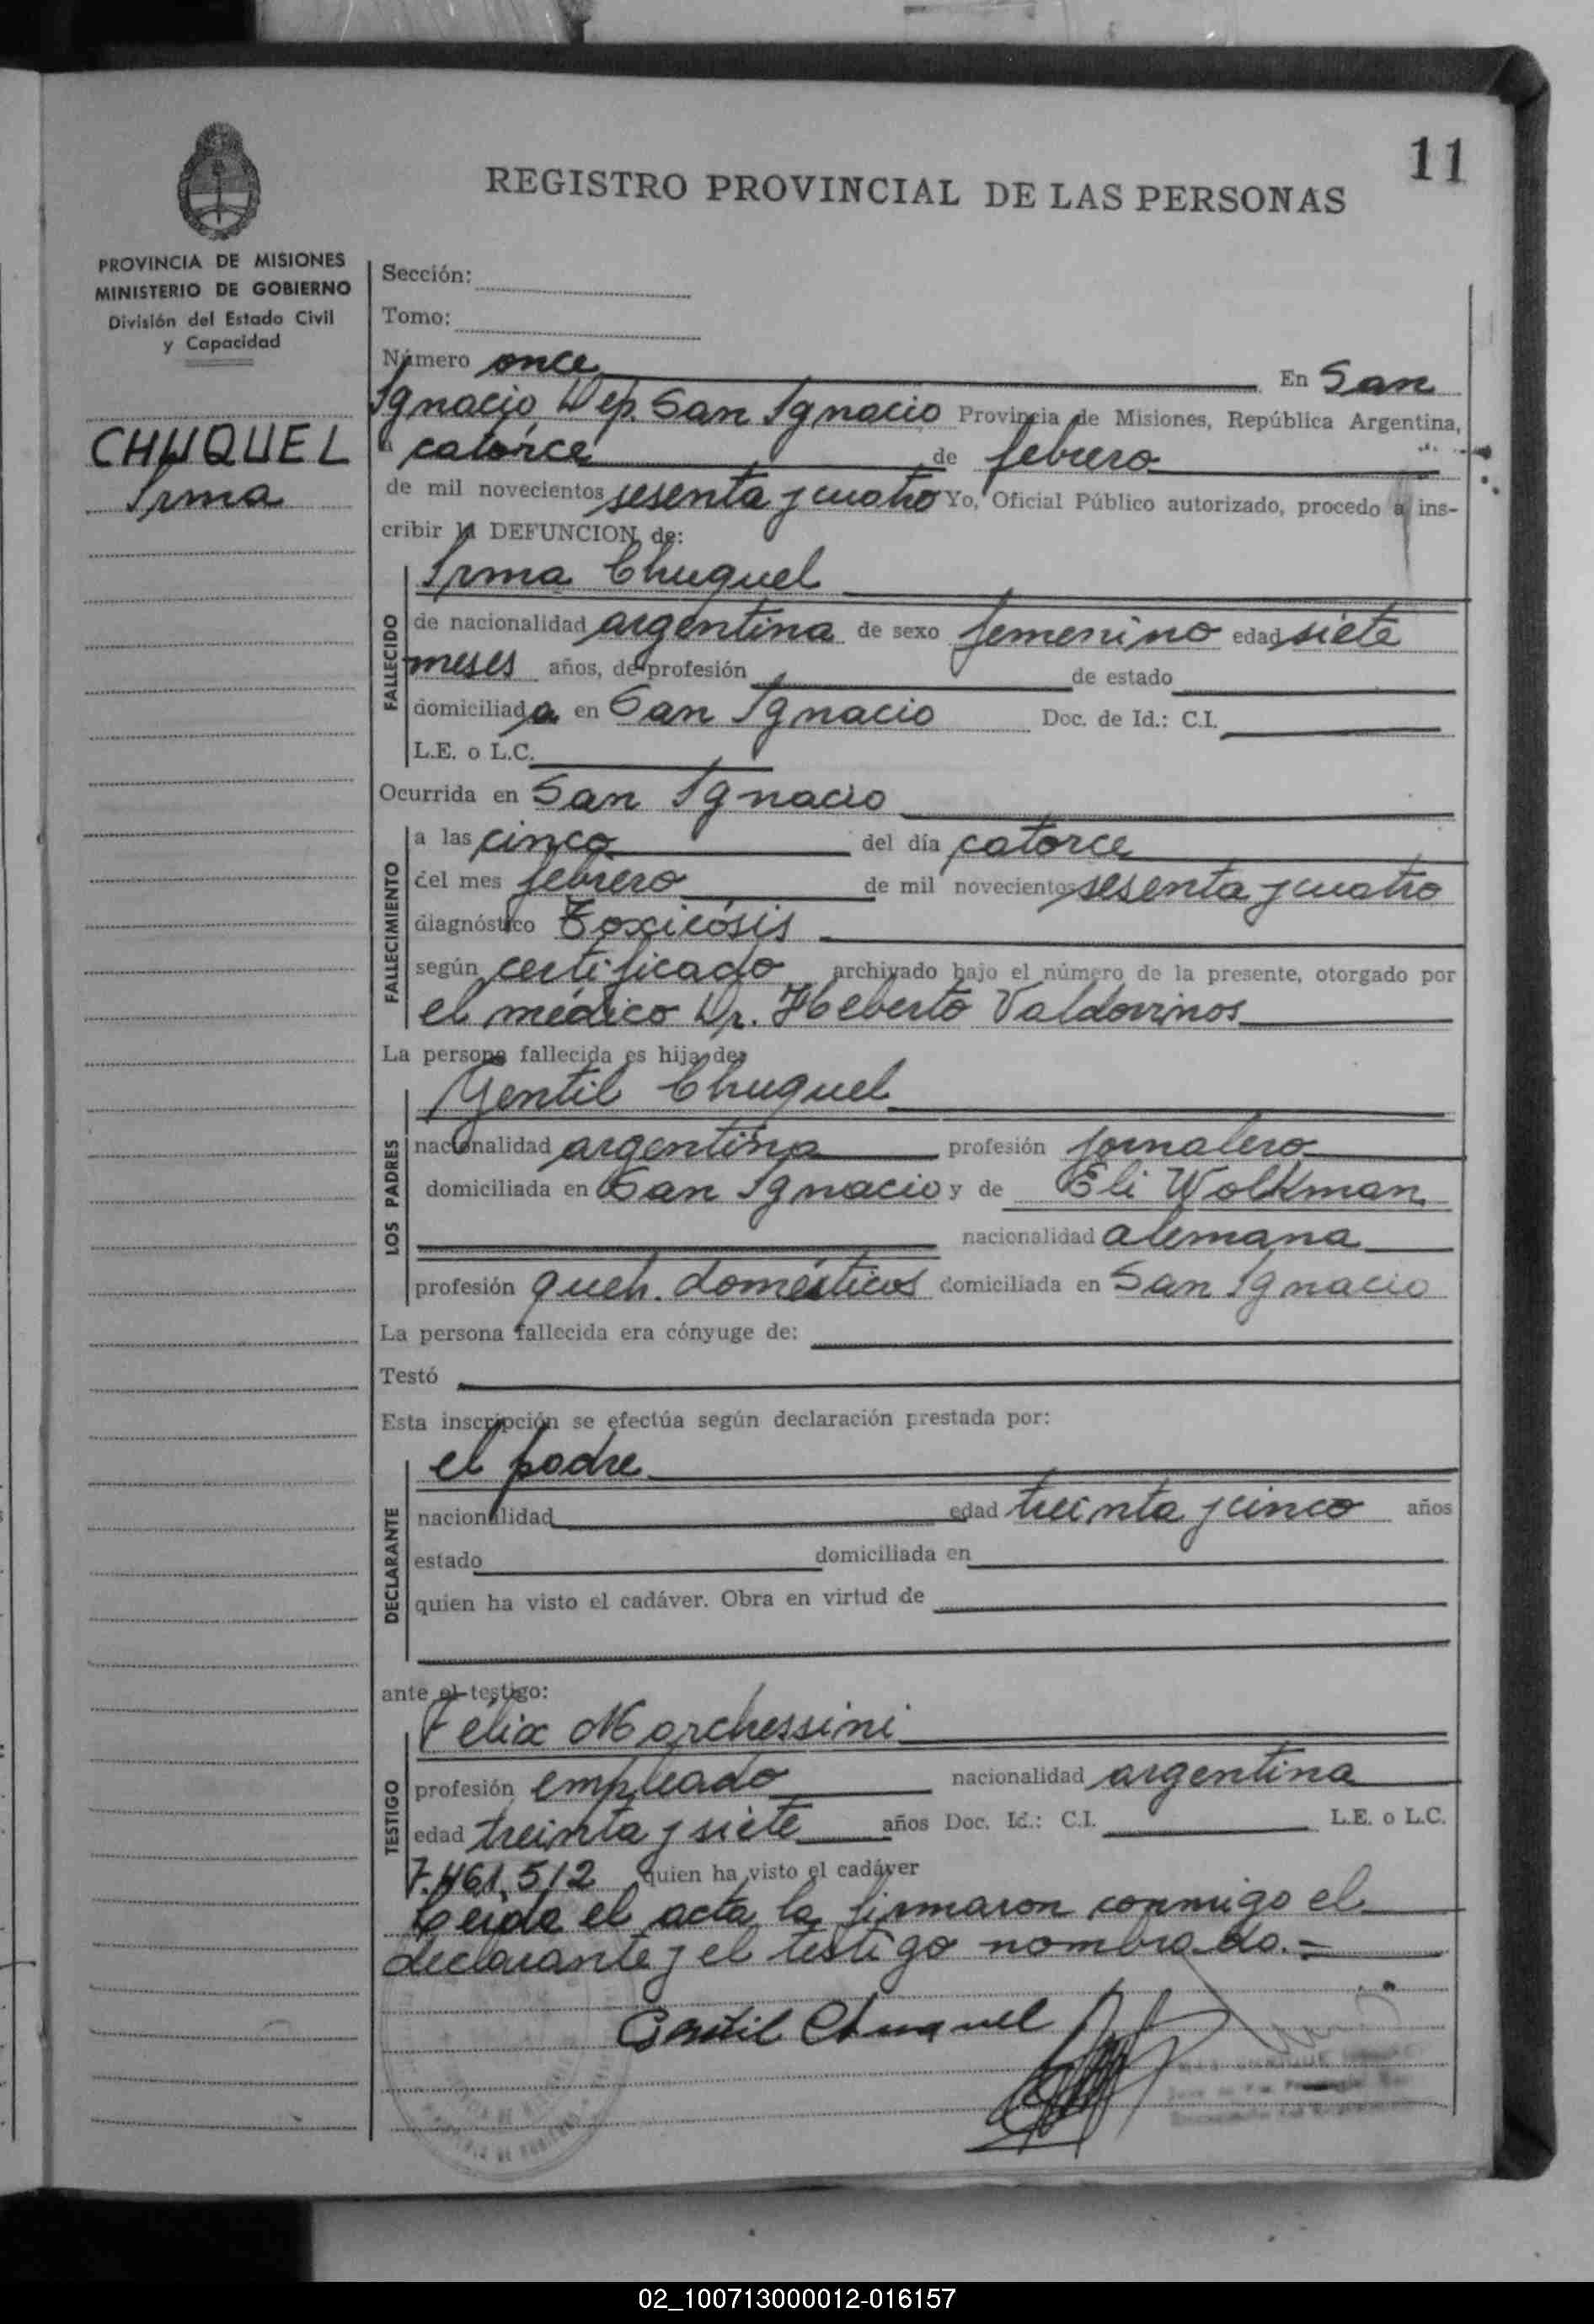 11
REGISTRO PROVINCIAL DE LAS PERSONAS
PROVINCIA DE MISIONES
MINISTERIO DE GOBIERNO
División del Estado Civil
y Capacidad
CHUQUEL
Irma
Sección:
Tomo:
Número once En San
Ignacio, Dep. San Ignacio Provincia de Misiones, República Argentina,
a catorce de febrero
de mil novecientos sesenta y cuatro Yo, Oficial Público autorizado, procedo a ins-
cribir la DEFUNCION de:
Irma Chuquel
FALLECIDO
de nacionalidad argentina de sexo femenino edad siete
meses años, de profesión de estado
domiciliada en San Ignacio Doc. de Id.: C.I.
L.E. o L.C.
Ocurrida en San Ignacio
FALLECIMIENTO
a las cinco del día catorce
del mes febrero de mil novecientos sesenta y cuatro
diagnóstico Toxicósis
según certificado archivado bajo el número de la presente, otorgado por
el médico Dr. Heberto Valdovinos
La persona fallecida es hija de:
Gentil Chuquel
LOS PADRES
nacionalidad argentina profesión jornalero
domiciliada en San Ignacio y de Eli Wolkman
nacionalidad alemana
profesión queh. domésticos domiciliada en San Ignacio
La persona fallecida era cónyuge de:
Testó
Esta inscripción se efectúa según declaración prestada por:
el padre
DECLARANTE
nacionalidad edad treinta y cinco años
estado domiciliada en
quien ha visto el cadáver. Obra en virtud de
ante el testigo:
Félix Marchessini
TESTIGO
profesión empleado nacionalidad argentina
edad treinta y siete años Doc. Id.: C.I. L.E. o L.C.
7.461.512 quien ha visto el cadáver
Leida el acta la firmaron conmigo el
declarante y el testigo nombrado.=
Gentil Chuquel
02_100713000012-016157